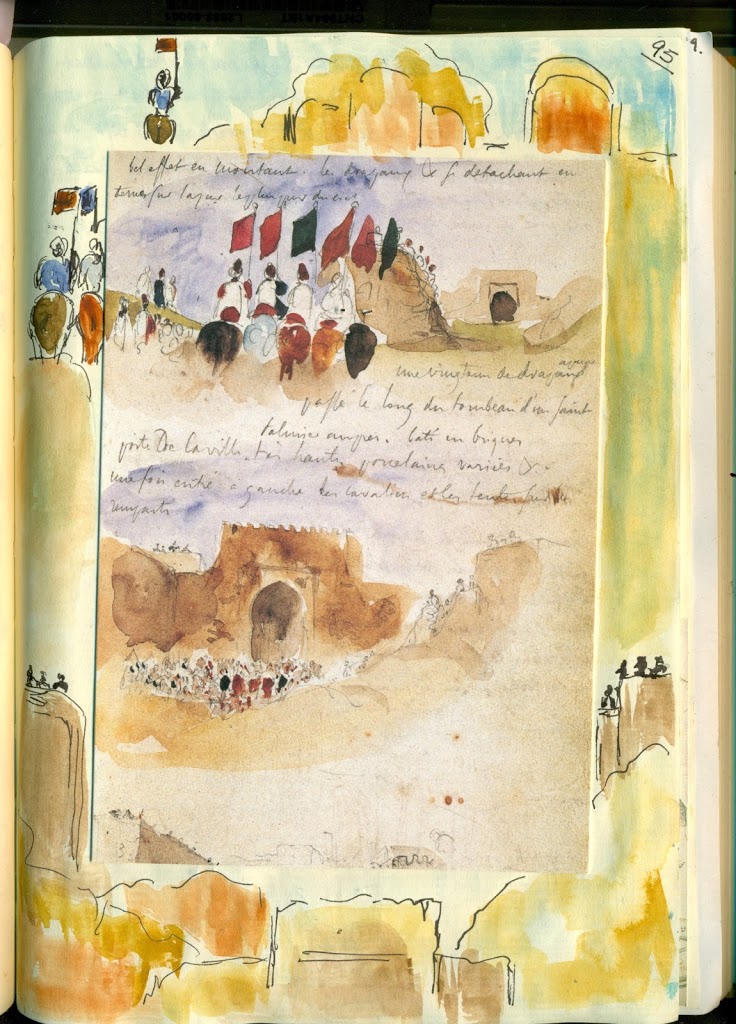 95
9.
bel effet en montant. les drapeaux & se détachant en
terre sur l'azur le plus pur du ciel
une vingtaine de drapeaux
passé le long du tombeau d'un saint
palmier auprès. bâti en briques
porte de la ville. très haute porcelaines variées &.
une fois entré à gauche les cavaliers et les tentes sur les
remparts